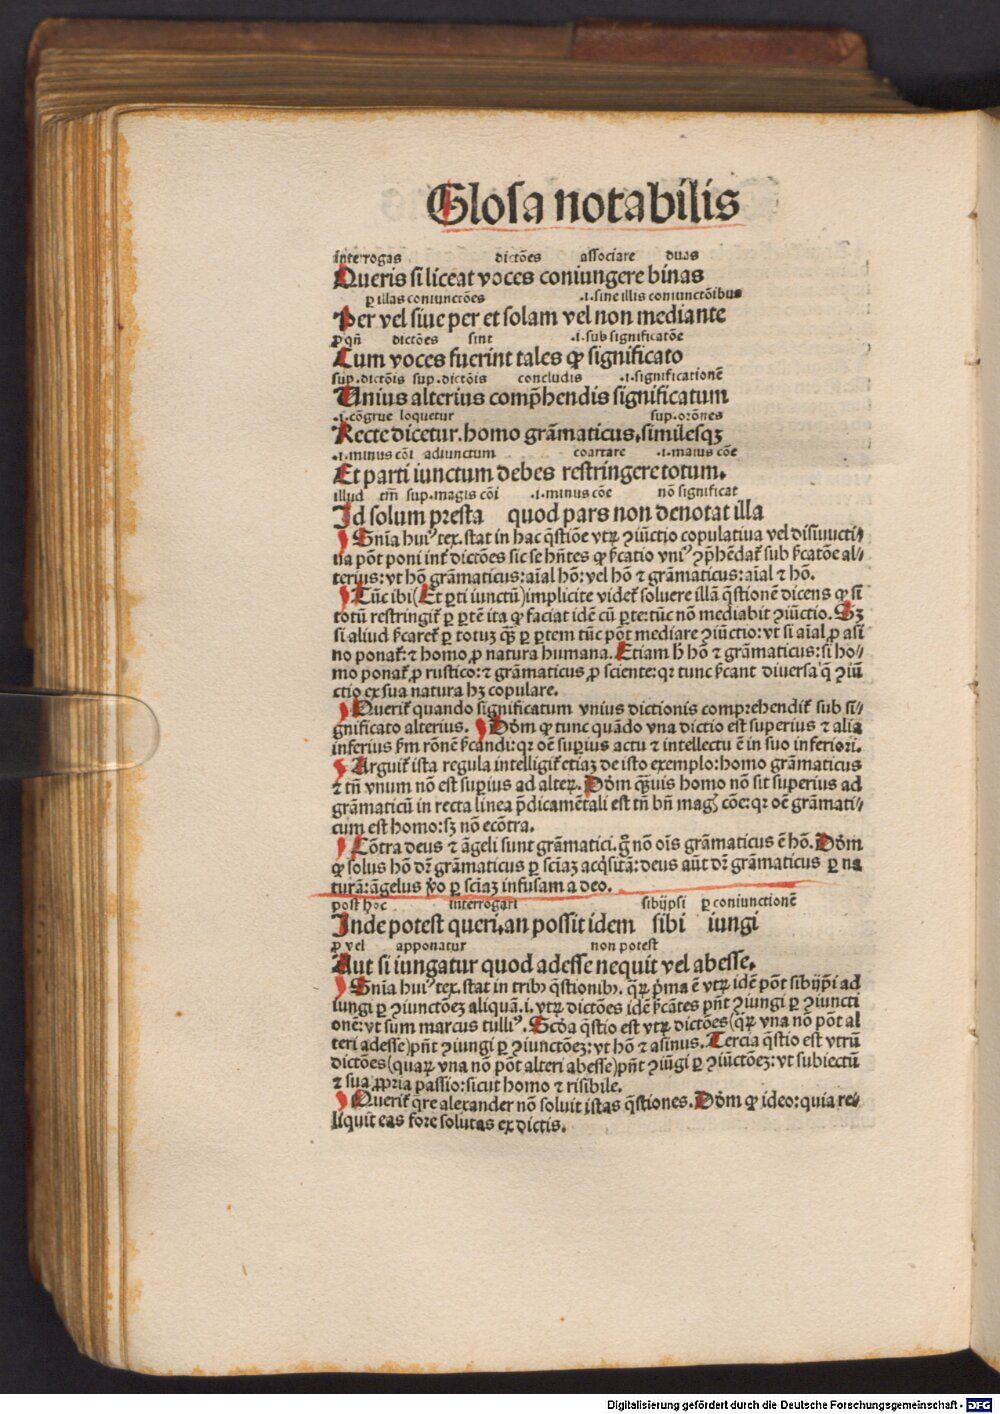 Glosa notabilis
interrogas dictões associare duas
Queris si liceat voces coniungere binas
ꝑ illas coniunctões .i. sine illis coniunctõibus
Per vel siue per et solam vel non mediante
ꝓ qñ dictões sint .i. sub significatõe
Cum voces fuerint tales ꝙ significato
sup. dictõis sup. dictõis concludis .i. significationẽ
Unius alterius comp̃hendis significatum
.i. cõgrue loquetur sup. orõnes
Recte dicetur. homo grãmaticus, similesqꝫ
.i. minus cõi adiunctum coartare .i. maius cõe
Et parti iunctum debes restringere totum.
illud tm̃ sup. magis cõi .i. minus cõe nõ significat
Id solum presta quod pars non denotat illa
Snĩa huiꝰ tex. stat in hac q̃stiõe vtꝝ ꝯiũctio copulatiua vel disiuncti⸗
ua põt poni int̃ dictões sic se hñtes ꝙ ẜcatio vniꝰ ꝯp̃hẽdat̃ sub ẜcatõe al⸗
terius: vt hõ grãmaticus: aĩal hõ: vel hõ ⁊ grãmaticus: aĩal ⁊ hõ.
Tũc ibi (Et ꝑti iunctũ) implicite videt̃ soluere illã q̃stionẽ dicens ꝙ si
totũ restringit̃ ꝑ ꝑtẽ ita ꝙ faciat idẽ cũ ꝑte: tũc nõ mediabit ꝯiũctio. Sꝫ
si aliud ẜcaret̃ ꝑ totuꝫ q̃ꝫ ꝑ ꝑtem tũc põt mediare ꝯiũctio: vt si aĩal ꝓ asi
no ponat̃: ⁊ homo ꝓ natura humana. Etiam ħ hõ ⁊ grãmaticus: si ho⸗
mo ponat̃ ꝓ rustico: ⁊ grãmaticus ꝓ sciente: qꝛ tunc ẜcant diuersa q̃ ꝯiũ
ctio ex sua natura hꝫ copulare.
Querit̃ quando significatum vnius dictionis comprehendit̃ sub si⸗
gnificato alterius. Dõm ꝙ tunc quãdo vna dictio est superius ⁊ alia
inferius ẜm rõnẽ ẜcandi: qꝛ oẽ supius actu ⁊ intellectu ẽ in suo inferiori.
Arguit̃ ista regula intelligit̃ etiaꝫ de isto exemplo: homo grãmaticus
⁊ tñ vnum nõ est supius ad alteꝝ. Dõm q̃ꝫuis homo nõ sit superius ad
grãmaticũ in recta linea p̃dicamẽtali est tñ bñ magꝭ cõe: qꝛ oẽ grãmati⸗
cum est homo: sꝫ nõ ecõtra.
Cõtra deus ⁊ ãgeli sunt grãmatici. g̃ nõ oĩs grãmaticus ẽ hõ. Dõm
ꝙ solus hõ dr̃ grãmaticus ꝑ scĩaꝫ acq̃sitã: deus aũt dr̃ grãmaticus ꝑ na
turã: ãgelus ꝟo ꝑ scĩaꝫ infusam a deo.
post hoc interrogari sibijpsi ꝑ coniunctionẽ
Inde potest queri, an possit idem sibi iungi
ꝓ vel apponatur non potest
Aut si iungatur quod adesse nequit vel abesse.
Snĩa huiꝰ tex. stat in tribꝰ q̃stionibꝰ. q̃ꝝ p̃ma ẽ vtꝝ idẽ põt sibijp̃i ad
iungi ꝑ ꝯiunctõeꝫ aliquã. i. vtꝝ dictões idẽ ẜcãtes pñt ꝯiungi ꝑ ꝯiuncti
onẽ: vt sum marcus tulliꝰ. Scđa q̃stio est vtꝝ dictões (q̃ꝝ vna nõ põt al
teri adesse) pñt ꝯiungi ꝑ ꝯiunctõeꝫ: vt hõ ⁊ asinus. Tercia q̃stio est vtrũ
dictões (quaꝝ vna nõ põt alteri abesse) pñt ꝯiũgi ꝑ ꝯiũctõeꝫ: vt subiectũ
⁊ sua ꝓpria passio: sicut homo ⁊ risibile.
Querit̃ q̃re alexander nõ soluit istas q̃stiones. Dõm ꝙ ideo: quia re⸗
liquit eas fore solutas ex dictis.
Digitalisierung gefördert durch die Deutsche Forschungsgemeinschaft - DFG